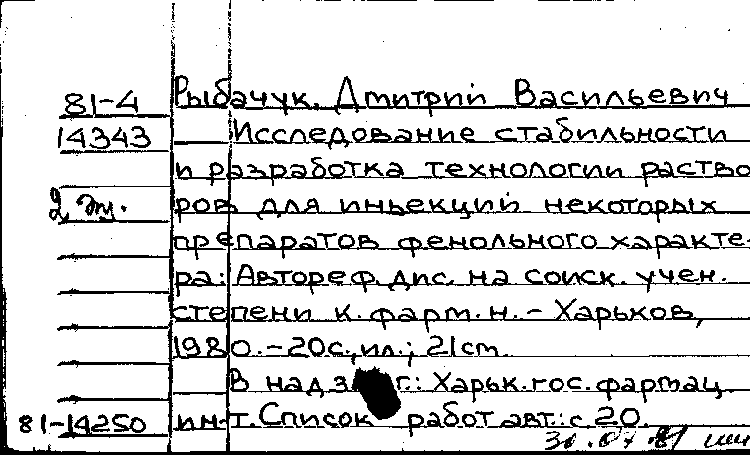 81-4 Рыбачук, Дмитрий Васильевич
14343 Исследование стабильности
и разработка технологии раство
2 эк. ров для инъекций некоторых
препаратов фенольного характе-
ра: Автореф. дис. на соиск. учен.
степени к. фарм. н. - Харьков,
1980. - 20с., ил.; 21см.
В надзаг.: Харьк. гос. фармац.
81-14250 ин-т. Список работ авт.: с 20.